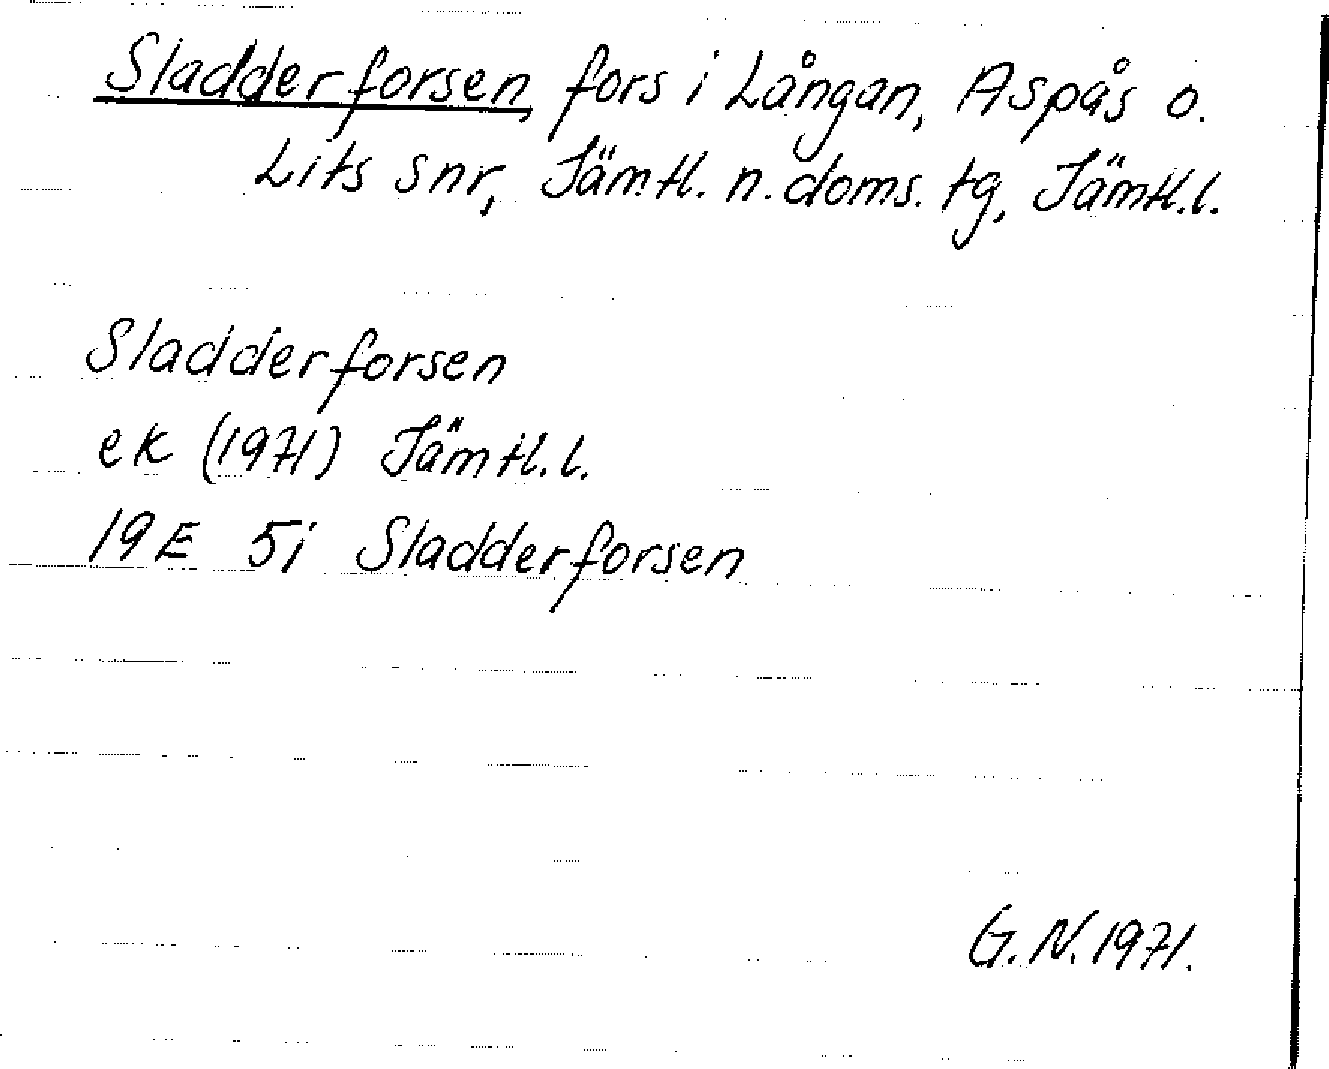 Sladderforsen, fors i Långan, Aspås o.
Lits snr, Jämtl. n. doms. tg, Jämtl.l.
Sladderforsen
ek (1971) Jämtl.l.
19E 5i Sladderforsen
G.N.1971.